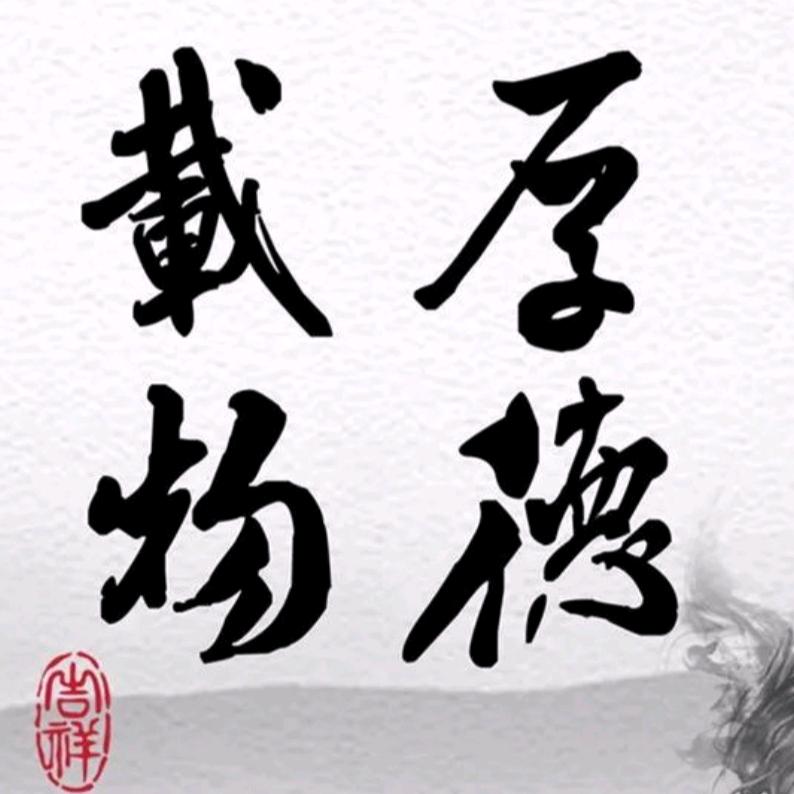 厚德
載物
吉祥